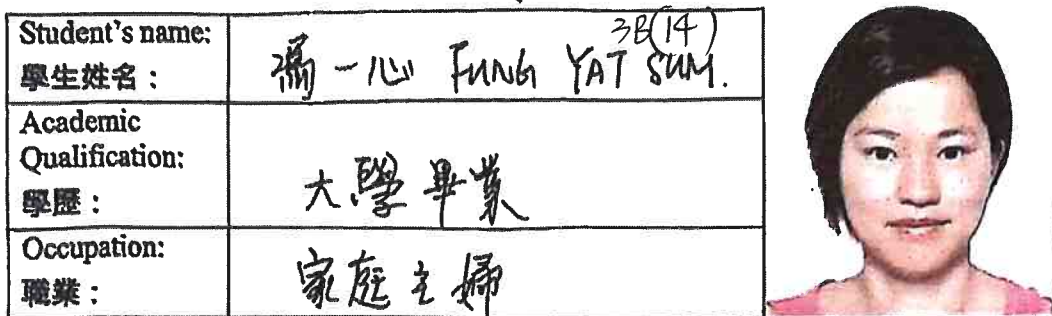 Student's name:
學生姓名：
3B(14)
馮一心 FUNG YAT SUM.
Academic
Qualification:
學歷：
大學畢業
Occupation:
職業：
家庭主婦